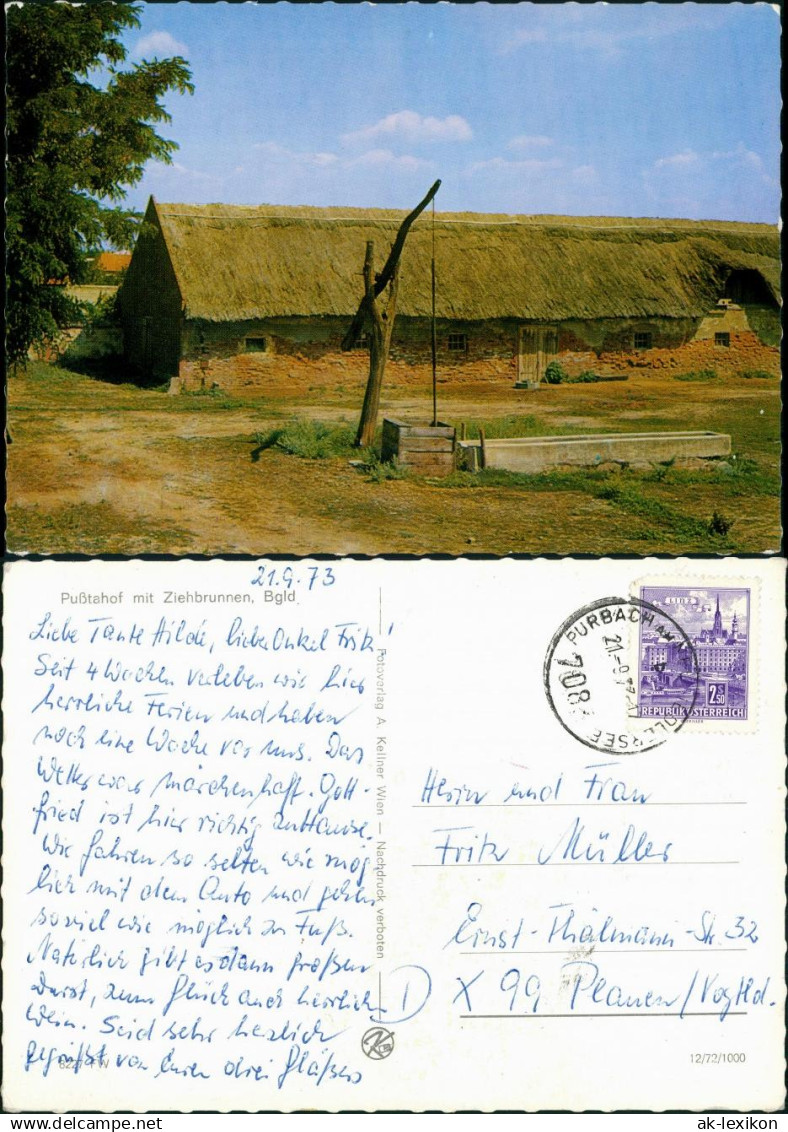 Pußtahof mit Ziehbrunnen, Bgld
21.9.73
Liebe Tante Hilde, lieber Onkel Fritz!
Seit 4 Wochen verleben wir hier
herrliche Ferien und haben
noch eine Woche vor uns. Das
Wetter war märchenhaft. Gott-
fried ist hier richtig zuHause.
Wir fahren so selten wie mög
lich mit dem Auto und gehen
soviel wie möglich zu Fuß.
Natürlich gibt es dann großen
Durst, zum Glück auch herrlichen
Wein. Seid sehr herzlich
gegrüßt von Euren drei Gläßers
Fotoverlag A. Kellner Wien — Nachdruck verboten
PURBACH AM
SEE
7083
LINZ
2.50
REPUBLIK ÖSTERREICH
Herrn und Frau
Fritz Müller
Ernst-Thälmann-Str. 32
D X 99 Plauen/Vogtld.
12/72/1000
© ak-lexikon
www.delcampe.net